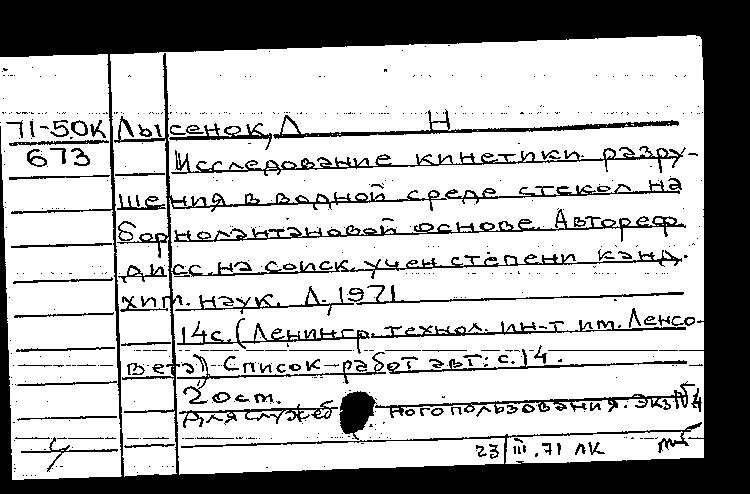 71-50К Лысенок, Л Н
673 Исследование кинетики разру-
шения в водной среде стекол на
борнолантановой основе. Автореф.
дисс. на соиск. учен степени канд.
хим. наук. Л., 1971
14с. (Ленингр. технол. ин-т им. Ленсо-
вета) Список работ авт: с. 14.
20 см.
Для служеб ного пользования. Экз
23/III.71 ЛК